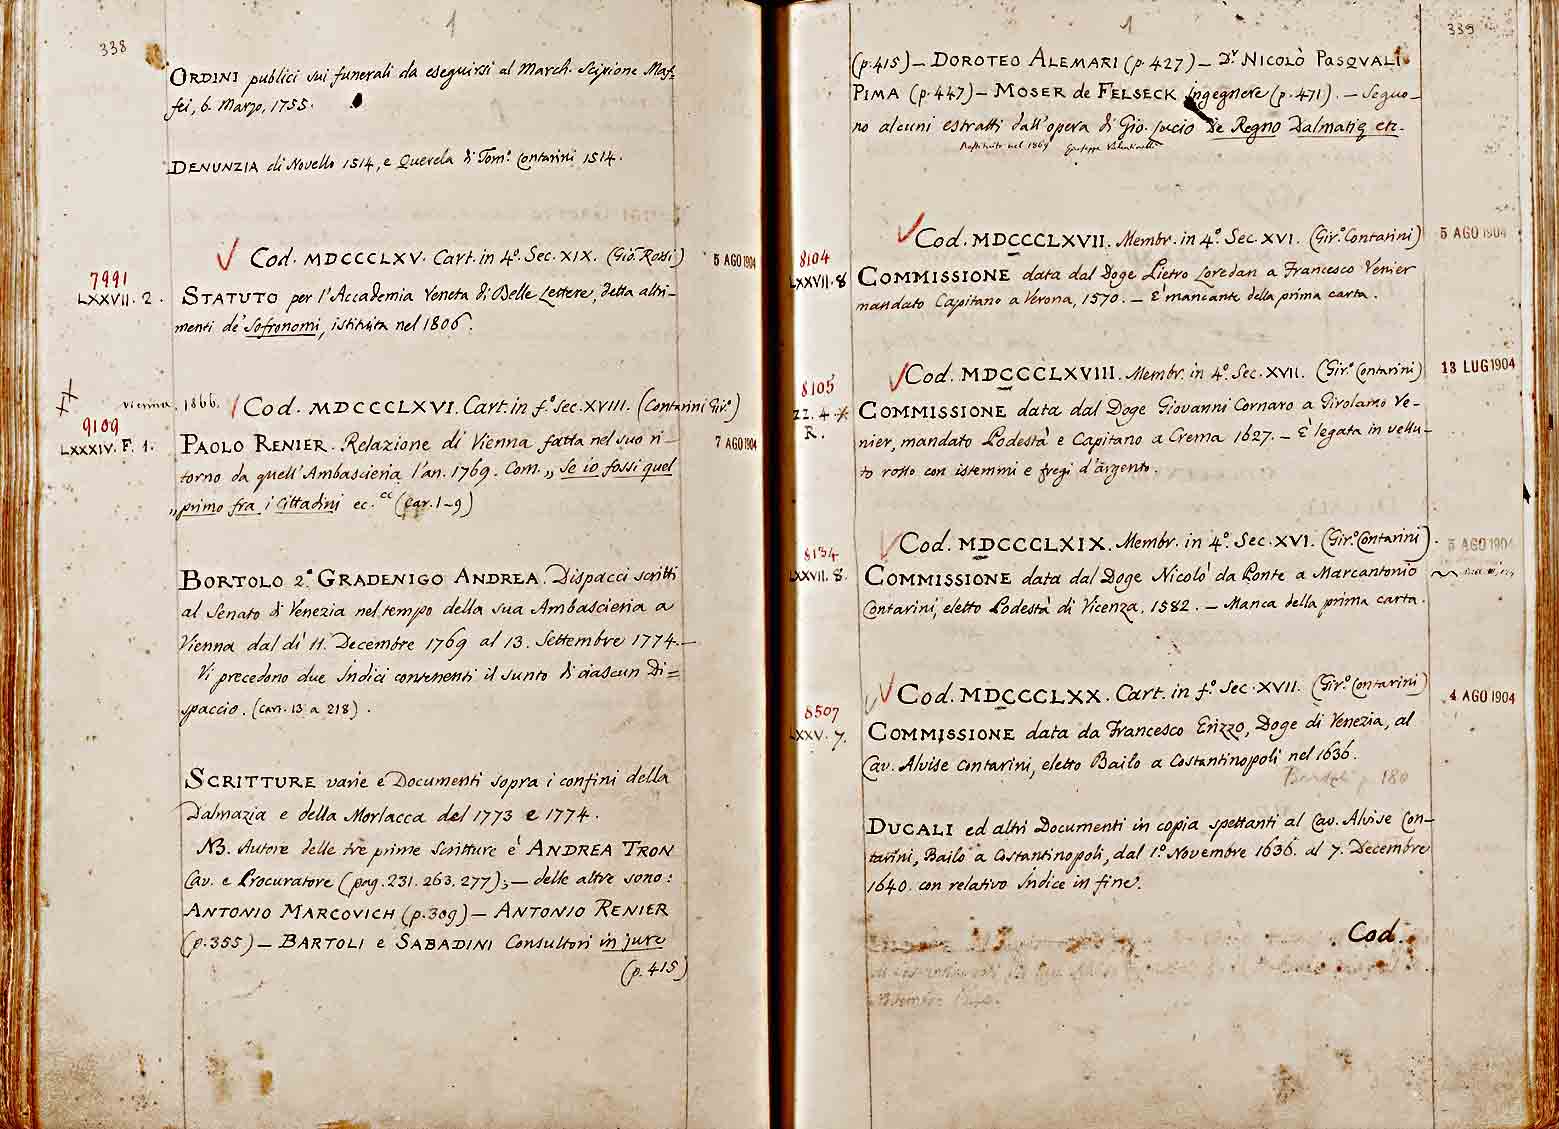 338
ORDINI publici sui funerali da eseguirsi al March. Scipione Maf-
fei, 6. Marzo, 1755.
DENUNZIA di Novello 1514, e Querela di Tom.º Contarini 1514.
Cod. MDCCCLXV. Cart. in 4.º Sec. XIX. (Gio. Rossi)
5 AGO 1904
7991
LXXVII. 2.
STATUTO per l'Accademia Veneta di Belle Lettere, detta altri-
menti de' Sofronomi, istituita nel 1806.
Vienna, 1866.
Cod. MDCCCLXVI. Cart. in f.º Sec. XVIII. (Contarini Gir.º)
9109
LXXXIV. F. 1.
7 AGO 1904
PAOLO RENIER. Relazione di Vienna fatta nel suo ri-
torno da quell'Ambascieria l'an. 1769. Com. „ Se io fossi quel
„ primo fra i Cittadini ec.ce (Car. 1-9)
BORTOLO 2.º GRADENIGO ANDREA. Dispacci scritti
al Senato di Venezia nel tempo della sua Ambascieria a
Vienna dal dì 11. Decembre 1769 al 13. Settembre 1774.—
Vi precedono due Indici contenenti il sunto di ciascun Di=
spaccio. (car. 13 a 218).
SCRITTURE varie e Documenti sopra i confini della
Dalmazia e della Morlacca del 1773 e 1774.
NB. Autore delle tre prime Scritture è ANDREA TRON
Cav. e Procuratore (pag. 231. 263. 277);— delle altre sono:
ANTONIO MARCOVICH (p. 309) — ANTONIO RENIER
(p. 355) — BARTOLI e SABADINI Consultori in jure
(p. 415)
339
(p. 415) — DOROTEO ALEMARI (p. 427) — D.r NICOLÒ PASQUALI
PIMA (p. 447) — MOSER de FELSECK Ingegnere (p. 471). — Seguo-
no alcuni estratti dall'opera di Gio. Lucio De Regno Dalmatiæ etc.
Restituito nel 1869 Giuseppe Valentinelli
Cod. MDCCCLXVII. Membr. in 4.º Sec. XVI. (Gir.º Contarini)
5 AGO 1904
8104
LXXVII. 8
COMMISSIONE data dal Doge Pietro Loredan a Francesco Venier
mandato Capitano a Verona, 1570. — E' mancante della prima carta.
Cod. MDCCCLXVIII. Membr. in 4.º Sec. XVII. (Gir.º Contarini)
13 LUG 1904
8105
ZZ. 4
R.
COMMISSIONE data dal Doge Giovanni Cornaro a Girolamo Ve-
nier, mandato Podestà e Capitano a Crema 1627. — È legata in vellu-
to rosso con istemmi e fregi d'argento.
Cod. MDCCCLXIX. Membr. in 4.º Sec. XVI. (Gir.º Contarini).
5 AGO 1904
8134
LXXVII. 8.
COMMISSIONE data dal Doge Nicolò da Ponte a Marcantonio
Contarini, eletto Podestà di Vicenza, 1582. — Manca della prima carta.
Cod. MDCCCLXX. Cart. in f.º Sec. XVII. (Gir.º Contarini)
4 AGO 1904
8507
LXXV. 7.
COMMISSIONE data da Francesco Erizzo, Doge di Venezia, al
Cav. Alvise Contarini, eletto Bailo a Costantinopoli nel 1636.
p. 180
DUCALI ed altri Documenti in copia spettanti al Cav. Alvise Con-
tarini, Bailo a Costantinopoli, dal 1.º Novembre 1636. al 7. Decembre
1640. con relativo Indice in fine.
Cod.